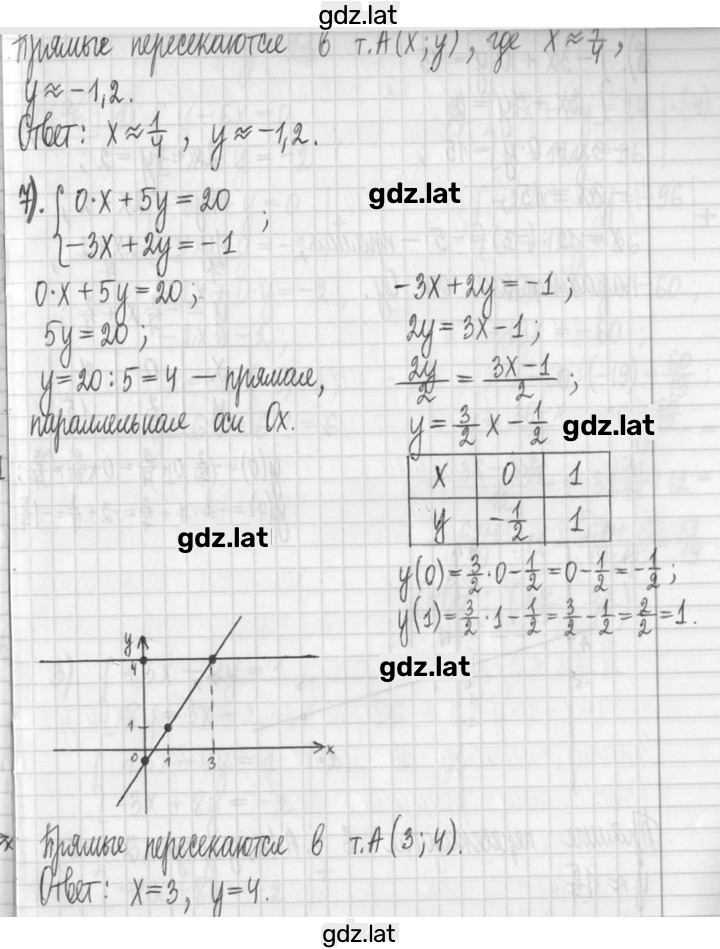 gdz.lat
Прямые пересекаются в т.А(x;y), где x≈1/4,
y≈-1,2.
Ответ: x≈1/4, y≈-1,2.
gdz.lat
7). { 0·x+5y=20
-3x+2y=-1 ;
0·x+5y=20;
5y=20;
y=20:5=4 — прямая,
параллельная оси Ox.
-3x+2y=-1;
2y=3x-1;
2y/2 = 3x-1/2;
y=3/2 x - 1/2
gdz.lat
x 0 1
y -1/2 1
gdz.lat
y(0)=3/2·0-1/2=0-1/2=-1/2;
y(1)=3/2·1-1/2=3/2-1/2=2/2=1.
gdz.lat
y
4
1
0 1 3 x
Прямые пересекаются в т.А(3;4).
Ответ: x=3, y=4.
gdz.lat